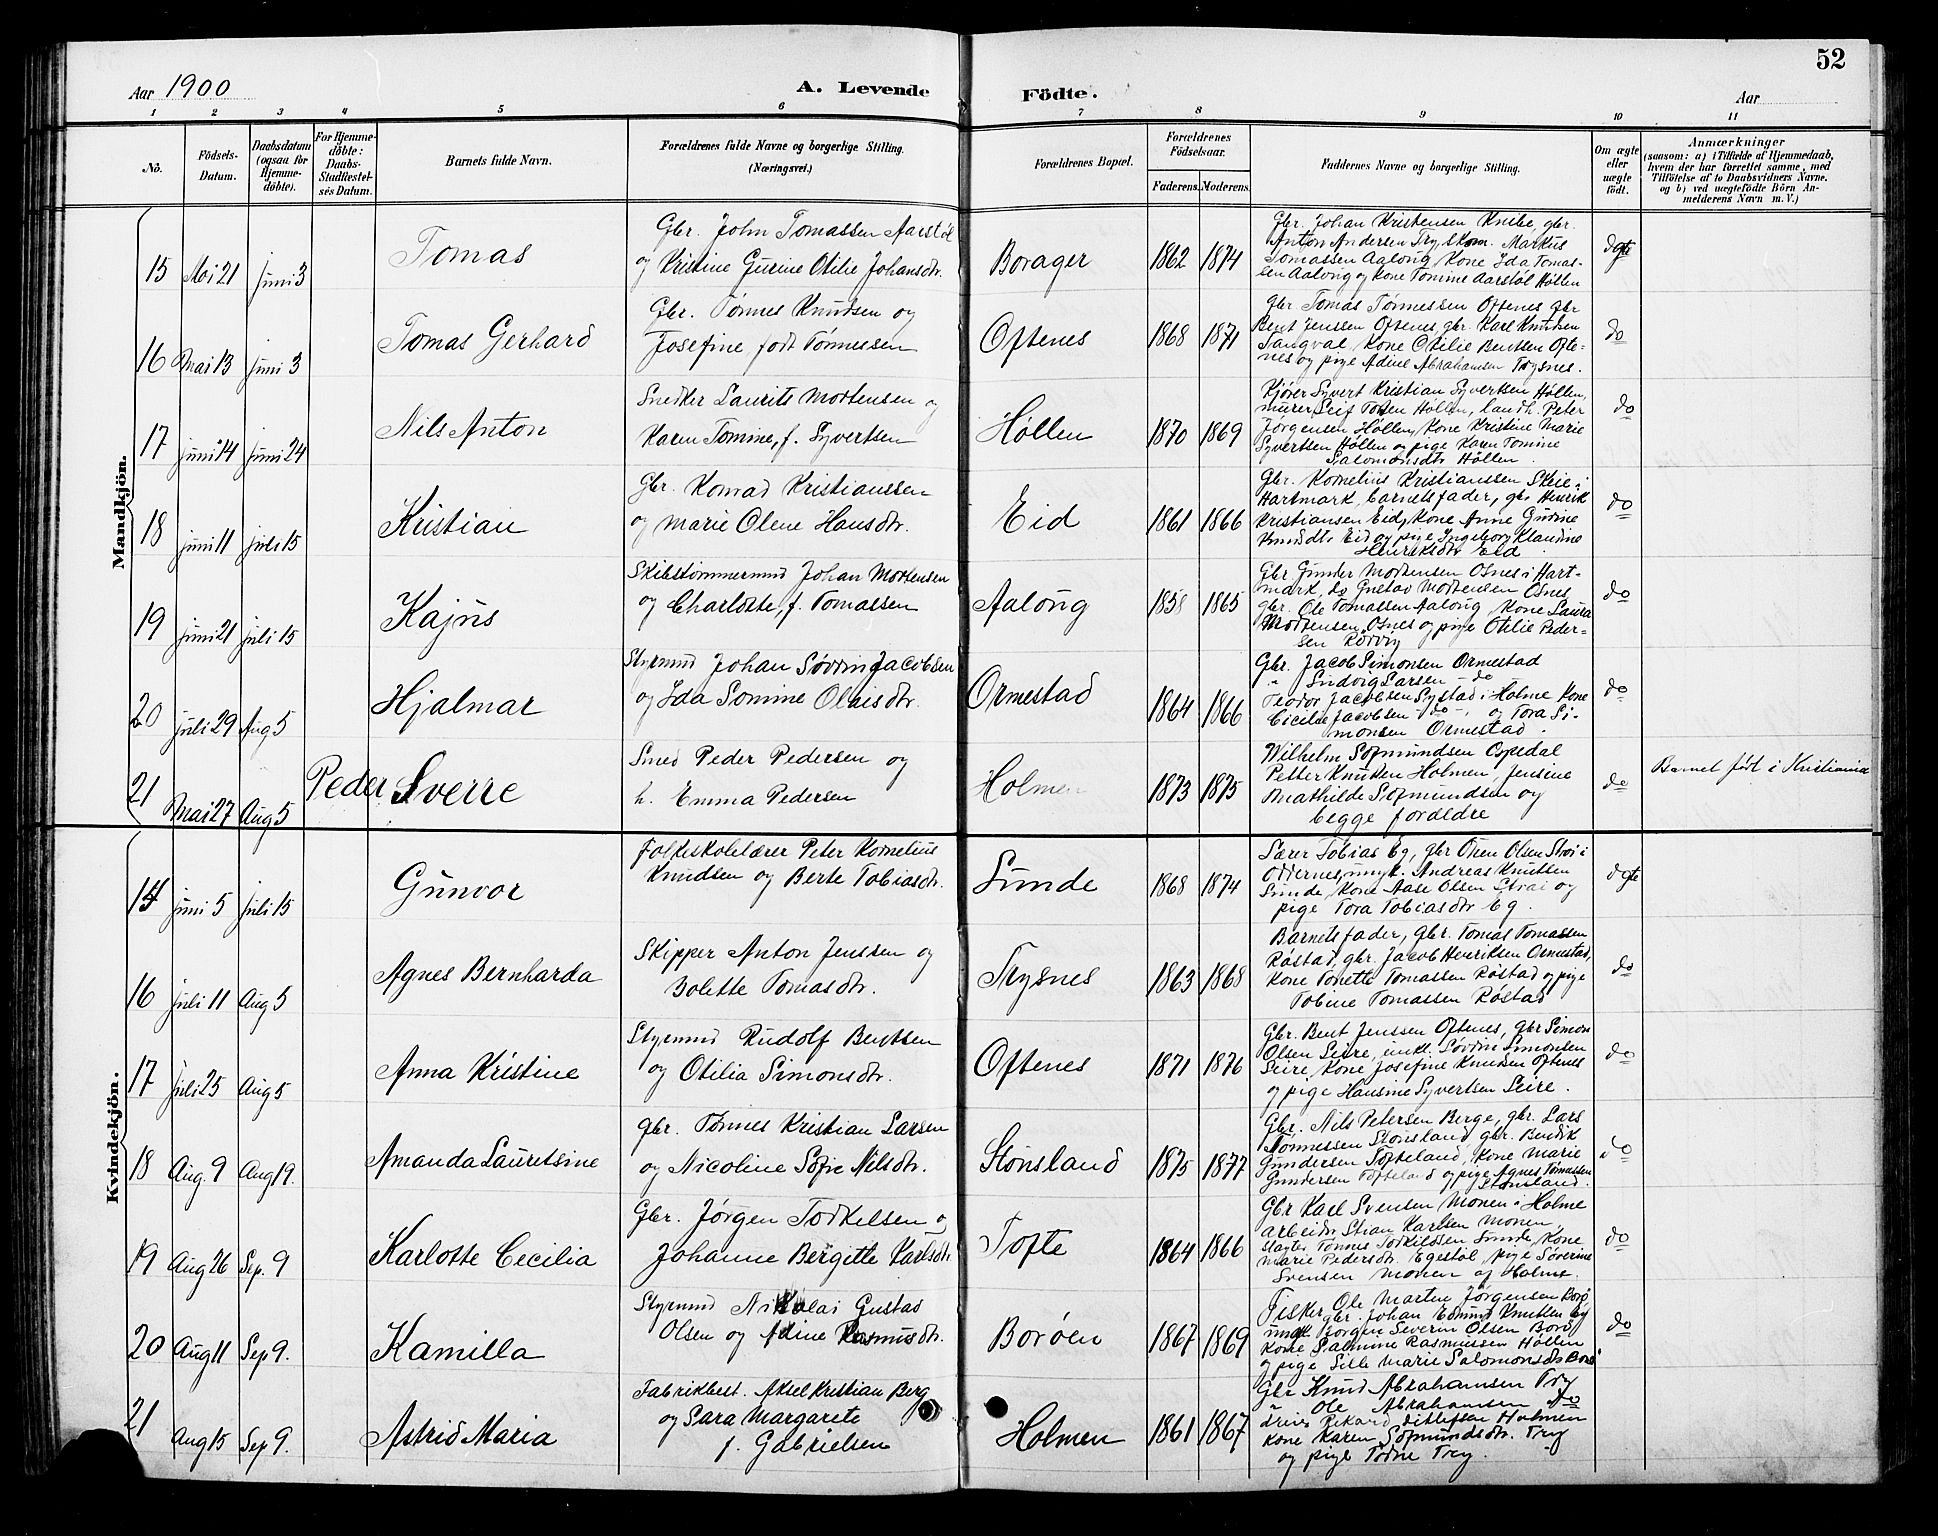 52
Aar 1900 A. Levende Födte. Aar
1 2 3 4 5 6 7 8 9 10 11
No.
Födsels-Datum.
Daabsdatum (ogsaa for Hjemme-döbte).
For Hjemme-döbte: Daabs-Stadfæstel-ses Datum.
Barnets fulde Navn.
Forældrenes fulde Navne og borgerlige Stilling. (Næringsvei.)
Forældrenes Bopæl.
Forældrenes Födselsaar.
Faderens. Moderens.
Faddernes Navne og borgerlige Stilling.
Om ægte eller uægte födt.
Anmærkninger
(saasom: a) i Tilfælde af Hjemmedaab,
hvem der har forrettet samme, med
Tilföielse af to Daabsvidners Navne.
og b) ved uægtefödte Börn An-
melderens Navn m. V.)
Mandkjön.
15 Mai 21 Juni 3 Tomas
Gbr. John Tomassen Aarstöl
og Kristine Gurine Otilie Johansdtr.
Borager 1862 1874
Gbr. Johan Kristensen Knibe, gbr.
Anton Andersen Try, Skom. Markus
Tomassen Aalong, Kone Ida Tomas-
sen Aalong og kone Tomine Aarstöl Höllen
16 Mai 13 Juni 3 Tomas Gerhard
Gbr. Tönnes Knudsen og
Josefine född Tönnessen
Oftenes 1868 1871
Gbr Tomas Tönnessen Oftenes gbr
Bent Jenssen Oftenes, gbr. Karl Knudsen
Tangval, Kone Otilie Bentsen Ofte-
nes og pige Adine Abrahamsen Trysnes.
do
17 Juni 14 Juni 24 Nils Anton
Snedker Laurits Mortensen og
Karen Tomine, f. Syvertsen
Höllen 1870 1869
Kjörer Syvert Kristian Syvertsen Höllen,
murer Leif Torsen Höllen, landh. Peter
Jörgensen Höllen, Kone Kristine Marie
Syvertsen Höllen og pige Karen Tomine
Salomonsdtr Höllen.
do
18 Juni 11 Juli 15 Kristian
Gbr. Konrad Kristianssen
og Marie Olene Hansdtr.
Eid 1861 1866
Gbr. Kornelius Kristianssen Skeie i
Hartmark, barnets fader, gbr Henrik
Kristiansen Eid, Kone Anne Gurine
Knudsdtr Eid og pige Ingeborg Klaudine
Henriksdtr Eid.
do
19 Juni 21 Juli 15 Kajus
Skibstömmermnd Johan Mortensen
og Charlotte, f. Tomassen
Aalong 1858 1865
Gbr Gunder Mortensen Osnes i Hart-
mark, do Gustav Mortensen Osnes
gbr. Ole Tomassen Aalong, Kone Laura
Mortensen Osnes og pige Otilie Peder-
sen Rörvig
do
20 Juli 29 Aug 5 Hjalmar
Styrmnd Johan Sövrin Jacobsen
og Ida Tomine Olausdtr.
Ormestad 1864 1866
Gbr. Jacob Simonsen Ormestad
" Ludvig Larsen - do
Teodor Jacobsen Systad i Holme Kone
Cecilie Jacobsen - do -, og Tora Si-
monsen Ormestad.
do
21 Mai 27 Aug 5 Peder Sverre
Smed Peder Pedersen og
h. Emma Pedersen
Holmen 1873 1875
Wilhelm Sofmundsen Ospedal
Petter Knutsen Holmen, Jensine
Mathilde Sofmundsen og
begge foraldre
do
Barnet födt i Kristiania
Kvindekjön.
Juni 5 Juli 15 Gunvor
Folkeskolelærer Peter Kornelius
Knudsen og Berte Tobiasdtr.
Sunde 1868 1874
Lærer Tobias Eg, gbr Oren Olsen Strai i
Oddernes, ungk. Andreas Knutsen
Sunde, Kone Aase Olsen Strai og
pige Tora Tobiasdtr Eg.
16 Juli 11 Aug 5 Agnes Bernharda
Skipper Anton Jenssen og
Bolette Tomasdtr.
Trysnes 1863 1868
Barnets fader, Gbr. Tomas Tomassen
Röstad, gbr. Jacob Henriksen Ormestad,
Kone Tonette Tomassen Röstad og pige
Tobine Tomassen Röstad
do
17 Juli 25 Aug 5 Anna Kristine
Styrmnd Rudolf Bentsen
og Otilia Simonsdtr.
Oftenes 1871 1876
Gbr. Bent Jenssen Oftenes, gbr Simon
Olsen Seire, unkl. Sövrin Simonsen
Seire, Kone Josefine Knudsen Oftenes
og pige Hansine Syvertsen Seire.
do
18 Aug. 9 Aug 19. Amanda Lauretsine
Gbr. Tönnes Kristian Larsen
og Nicoline Sofie Nilsdtr.
Stönsland 1875 1877
Gbr. Nils Petersen Berge, gbr. Lars
Tönnessen Stönsland, gbr. Bendik
Gundersen Tofteland, Kone Marie
Gundersen Tofteland og pige Agnes Tomassen
Stonsland.
do
19 Aug 26 Sep. 9 Karlotte Cecilia
Gbr. Jörgen Torkelsen og
Johanne Bergitte Karlsdtr.
Tofte 1864 1866
Gbr Karl Svensen Monen i Holme
arbeidr Stian Karlsen Monen,
slagter Tönnes Torkildsen Sunde, Kone
Marie Pedersdtr. Egestöl, pige Söverine
Svensen Monen af Holme.
do
20 Aug 11 Sep 9. Kamilla
Styrmnd Nikolai Gustav
Olsen og Adine Rasmusdtr.
Boröen 1867 1869
Fisker Ole Martin Jörgensen Borö
gbr. Johan Edmund Knutsen Eg
ungk Jörgen Severin Olsen Borö
Kone Salmine Rasmussen Höllen
og pige Sille Marie Salomonsdtr Borö
do
21 Aug 15 Sep 9. Astrid Maria
Fabrikbest. Aksel Kristian Berg
og Sara Margarete
f. Gabrielsen
Holmen 1861 1867
Gbr Knud Abrahamsen Try
" Ole Abrahamsen do
Rikard Ditlefsen Holmen
Kone Karen Sofmundsdtr. Try
og pige Torne Try.